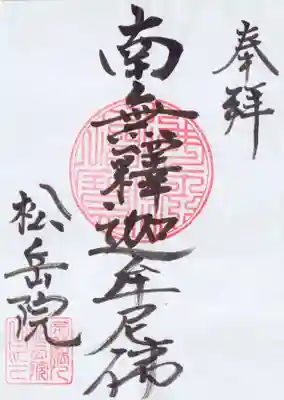 奉拜
南無釋迦牟尼佛
松岳院